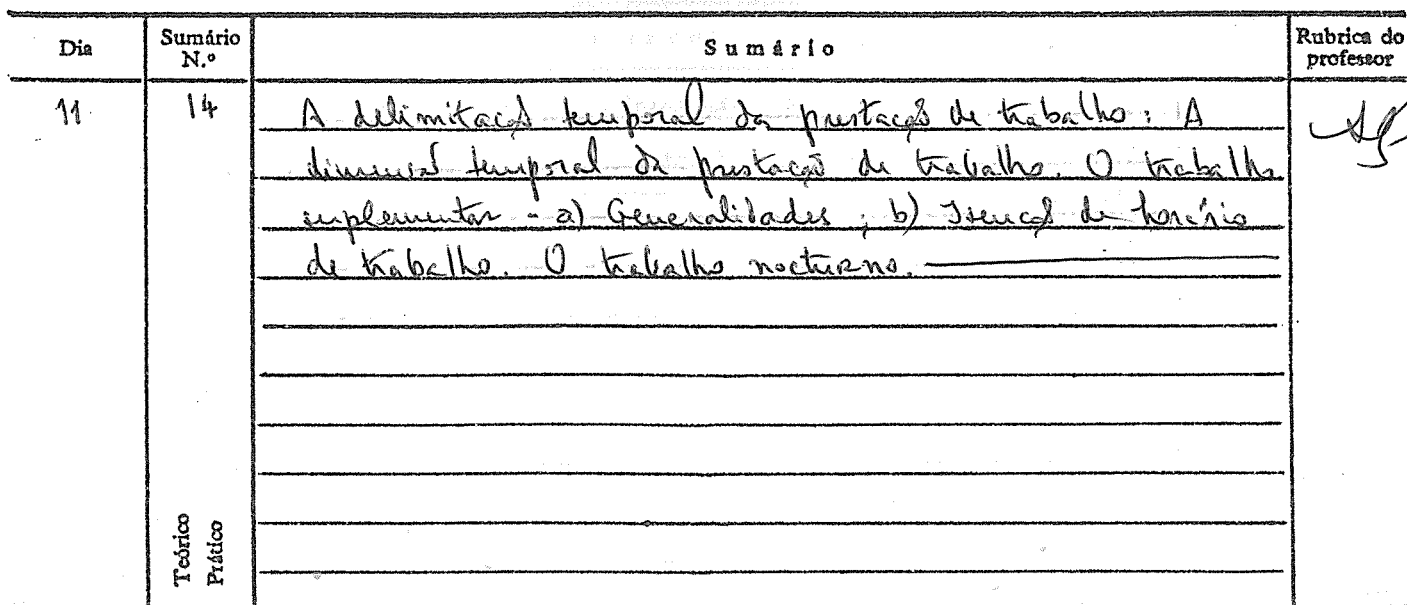 Dia
Sumário N.º
Sumário
Rubrica do professor
11
14
A delimitação temporal da prestação de trabalho: A
dimensão temporal da prestação de trabalho. O trabalho
suplementar - a) Generalidades; b) Isenção de horário
de trabalho. O trabalho nocturno.
Teórico
Prático